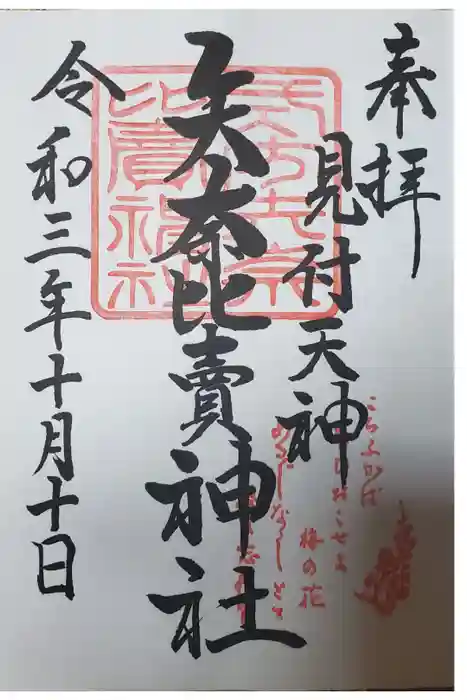 奉拝
見付天神
矢奈比賣神社
令和三年十月十日
こちふかば
にほひおこせよ
梅の花
あるじなしとて